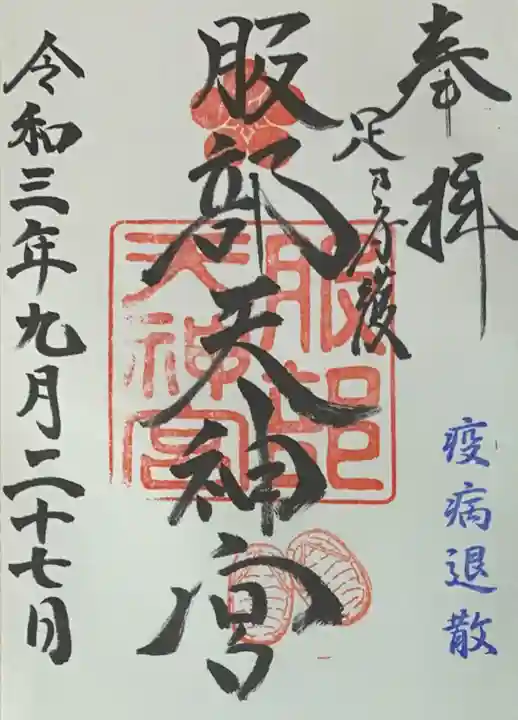 奉拝
疫病退散
足乃守護
服部天神宮
服部
天神宮
令和三年九月二十七日